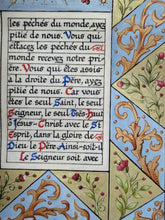 les péchés du monde, ayez
pitié de nous. Vous qui
effacez les péchés du
monde recevez notre priè
re. Vous qui êtes assis
à la droite du Père, ayez
pitié de nous. Car vous
êtes le seul Saint, le seul
Seigneur, le seul Très-haut
Jésus-Christ avec le St
Esprit, dans la gloire de
Dieu le Père. Ainsi-soit-il
Le Seigneur soit avec